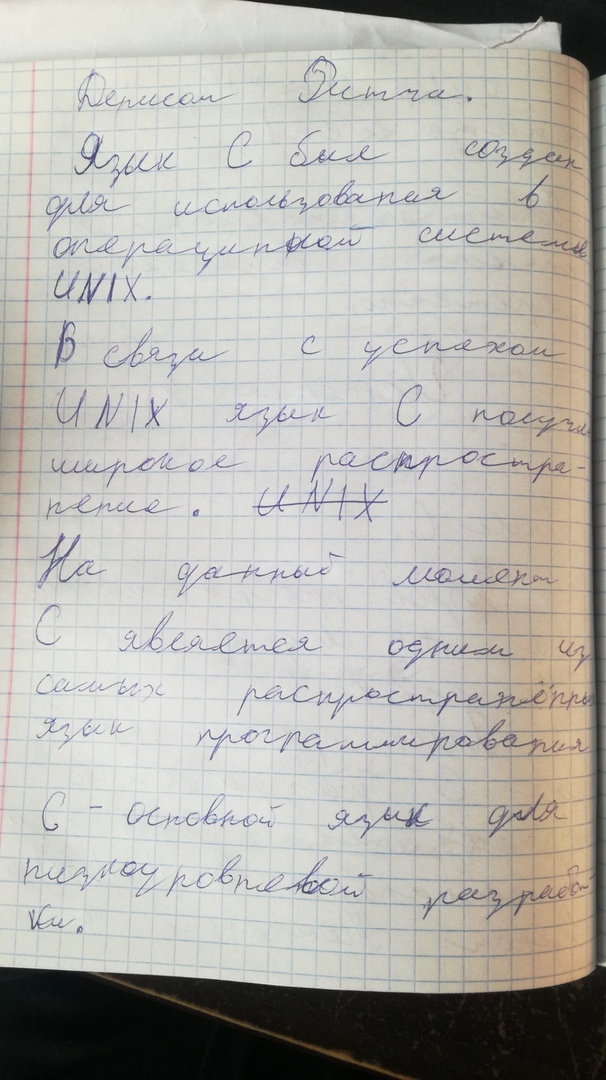 Денисом Ритчи.
Язык С был создан
для использования в
операционной системе
UNIX.
В связи с успехом
UNIX язык С получил
широкое распростра-
нение. UNIX
На данный момент
С является одним из
самых распространённых
язык программирования
С - основной язык для
низкоуровневой разработ
ки.